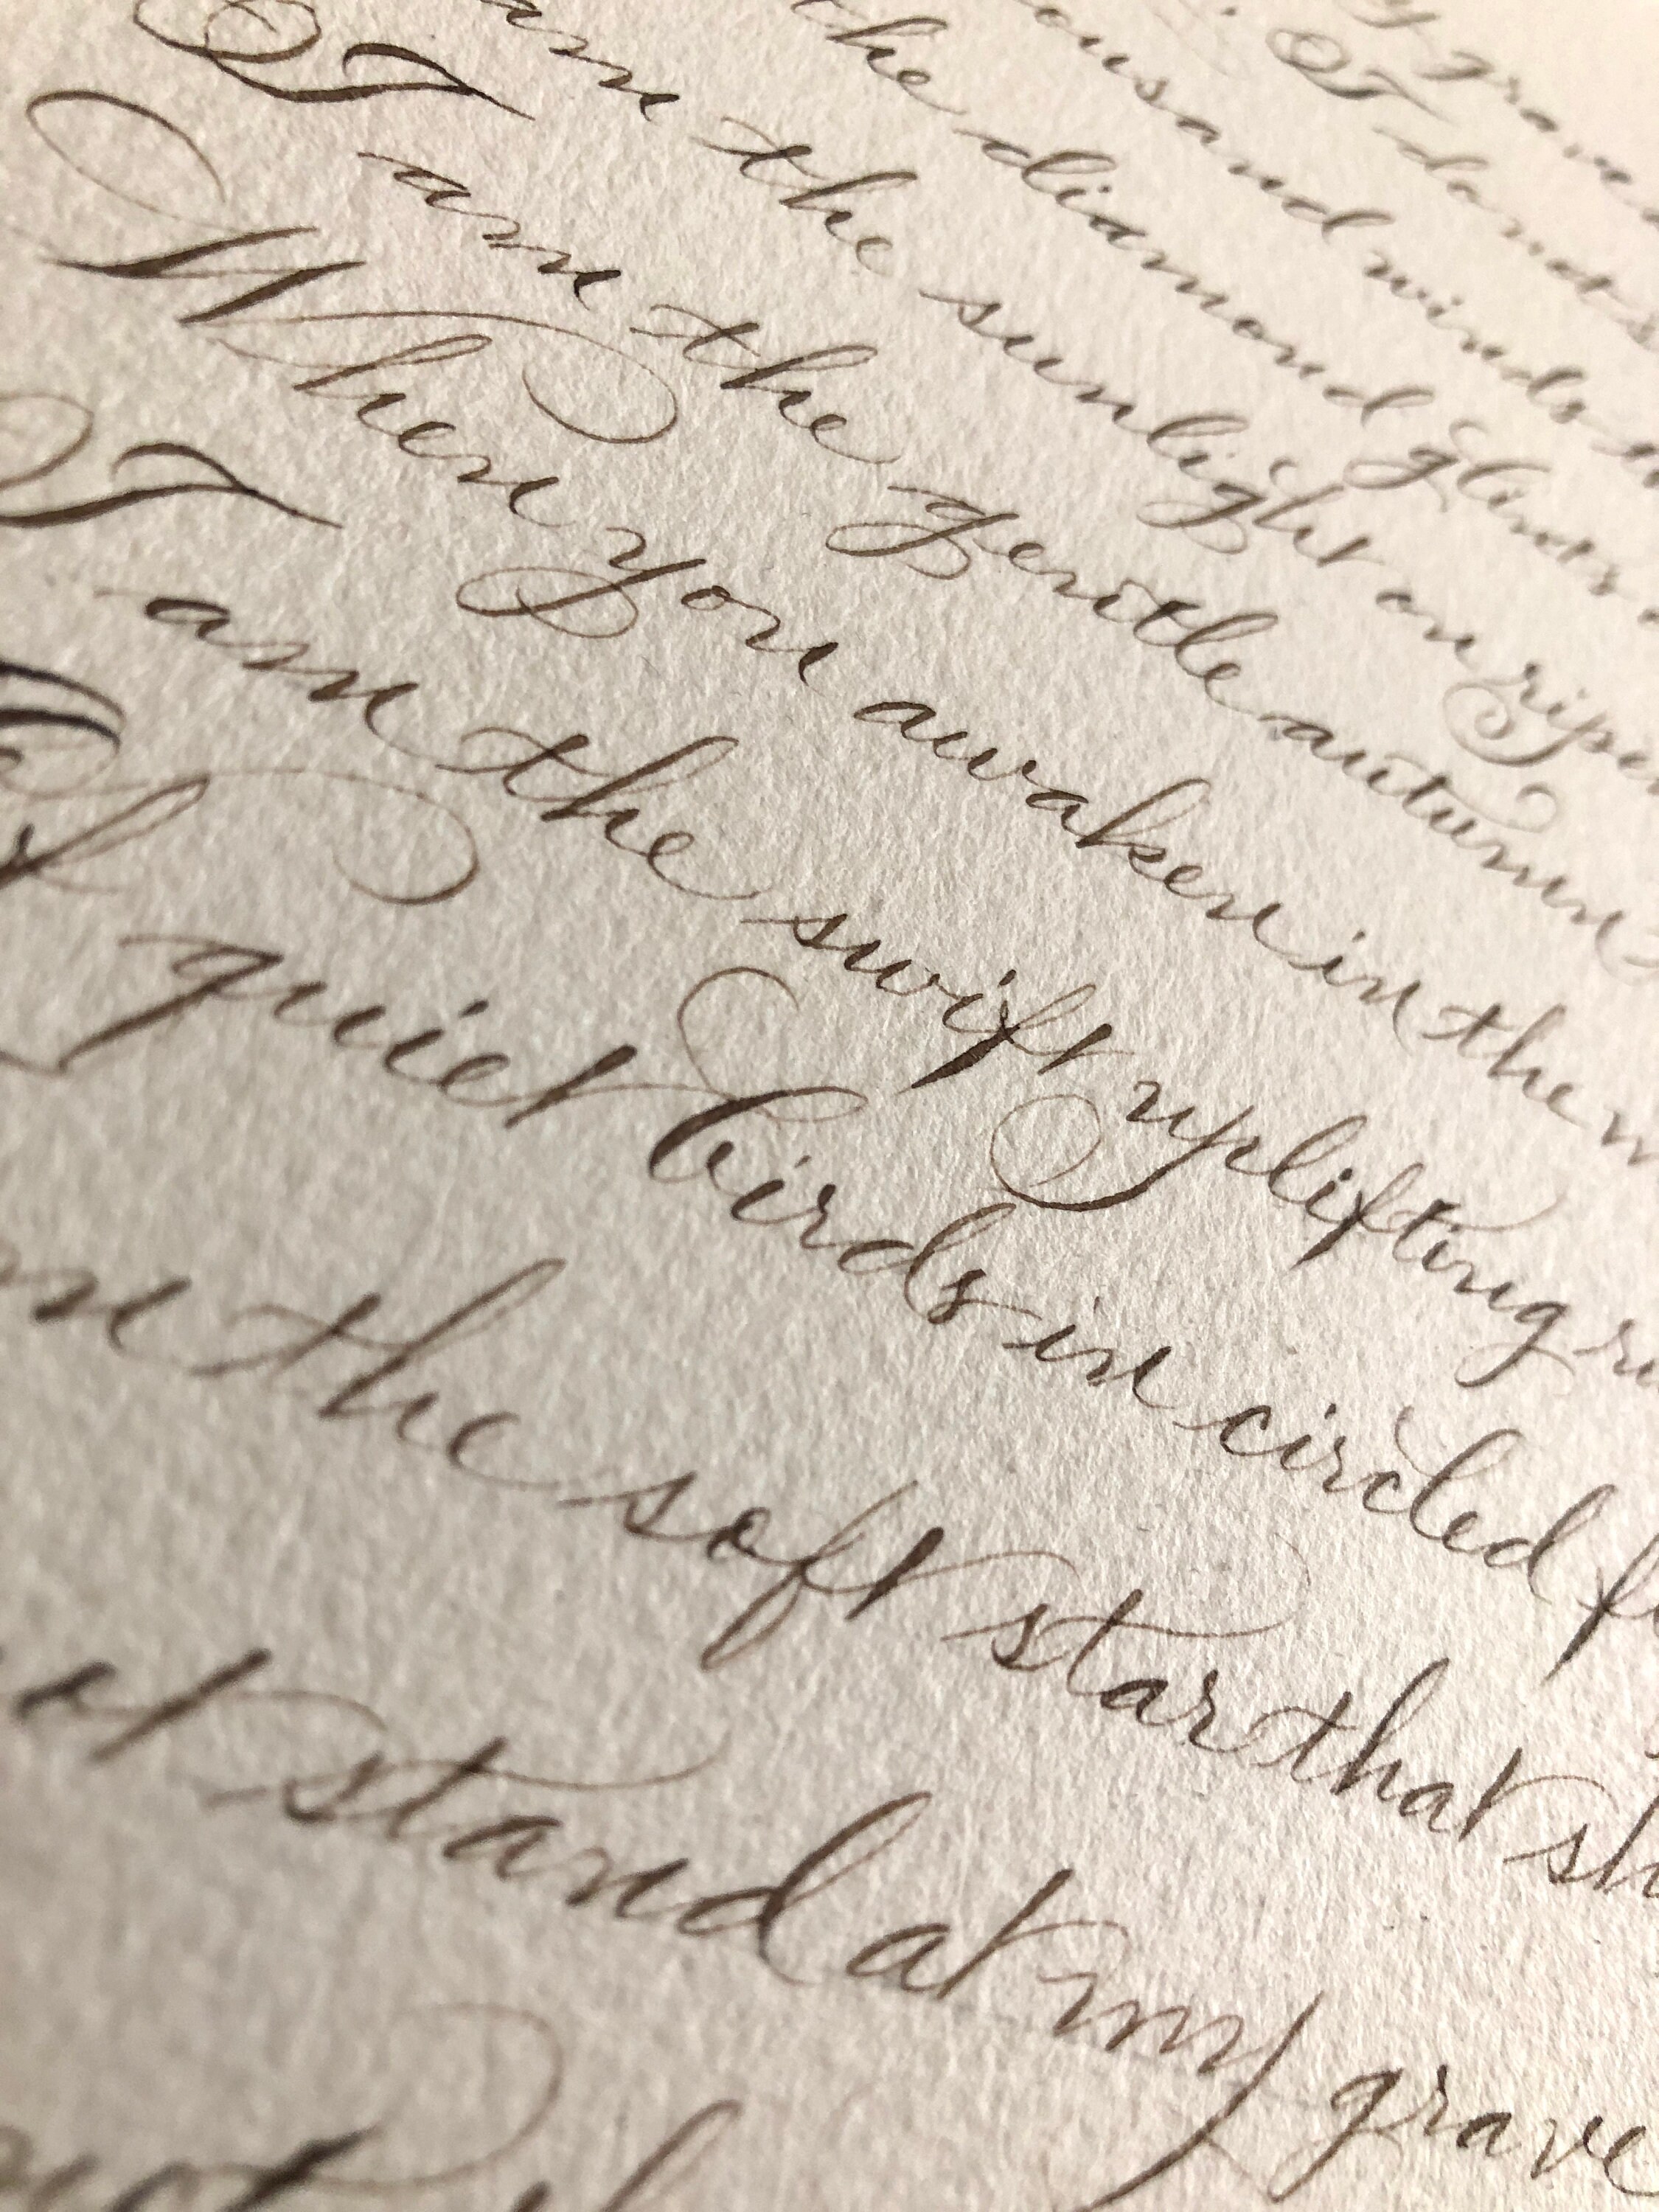 y grave
I do not
ousand winds
the diamond glints
I am the sunlight on ripe
I am the gentle autumn
When you awaken in the
I am the swift uplifting
Of quiet birds in circled
the soft star that sh
ot stand at my grave